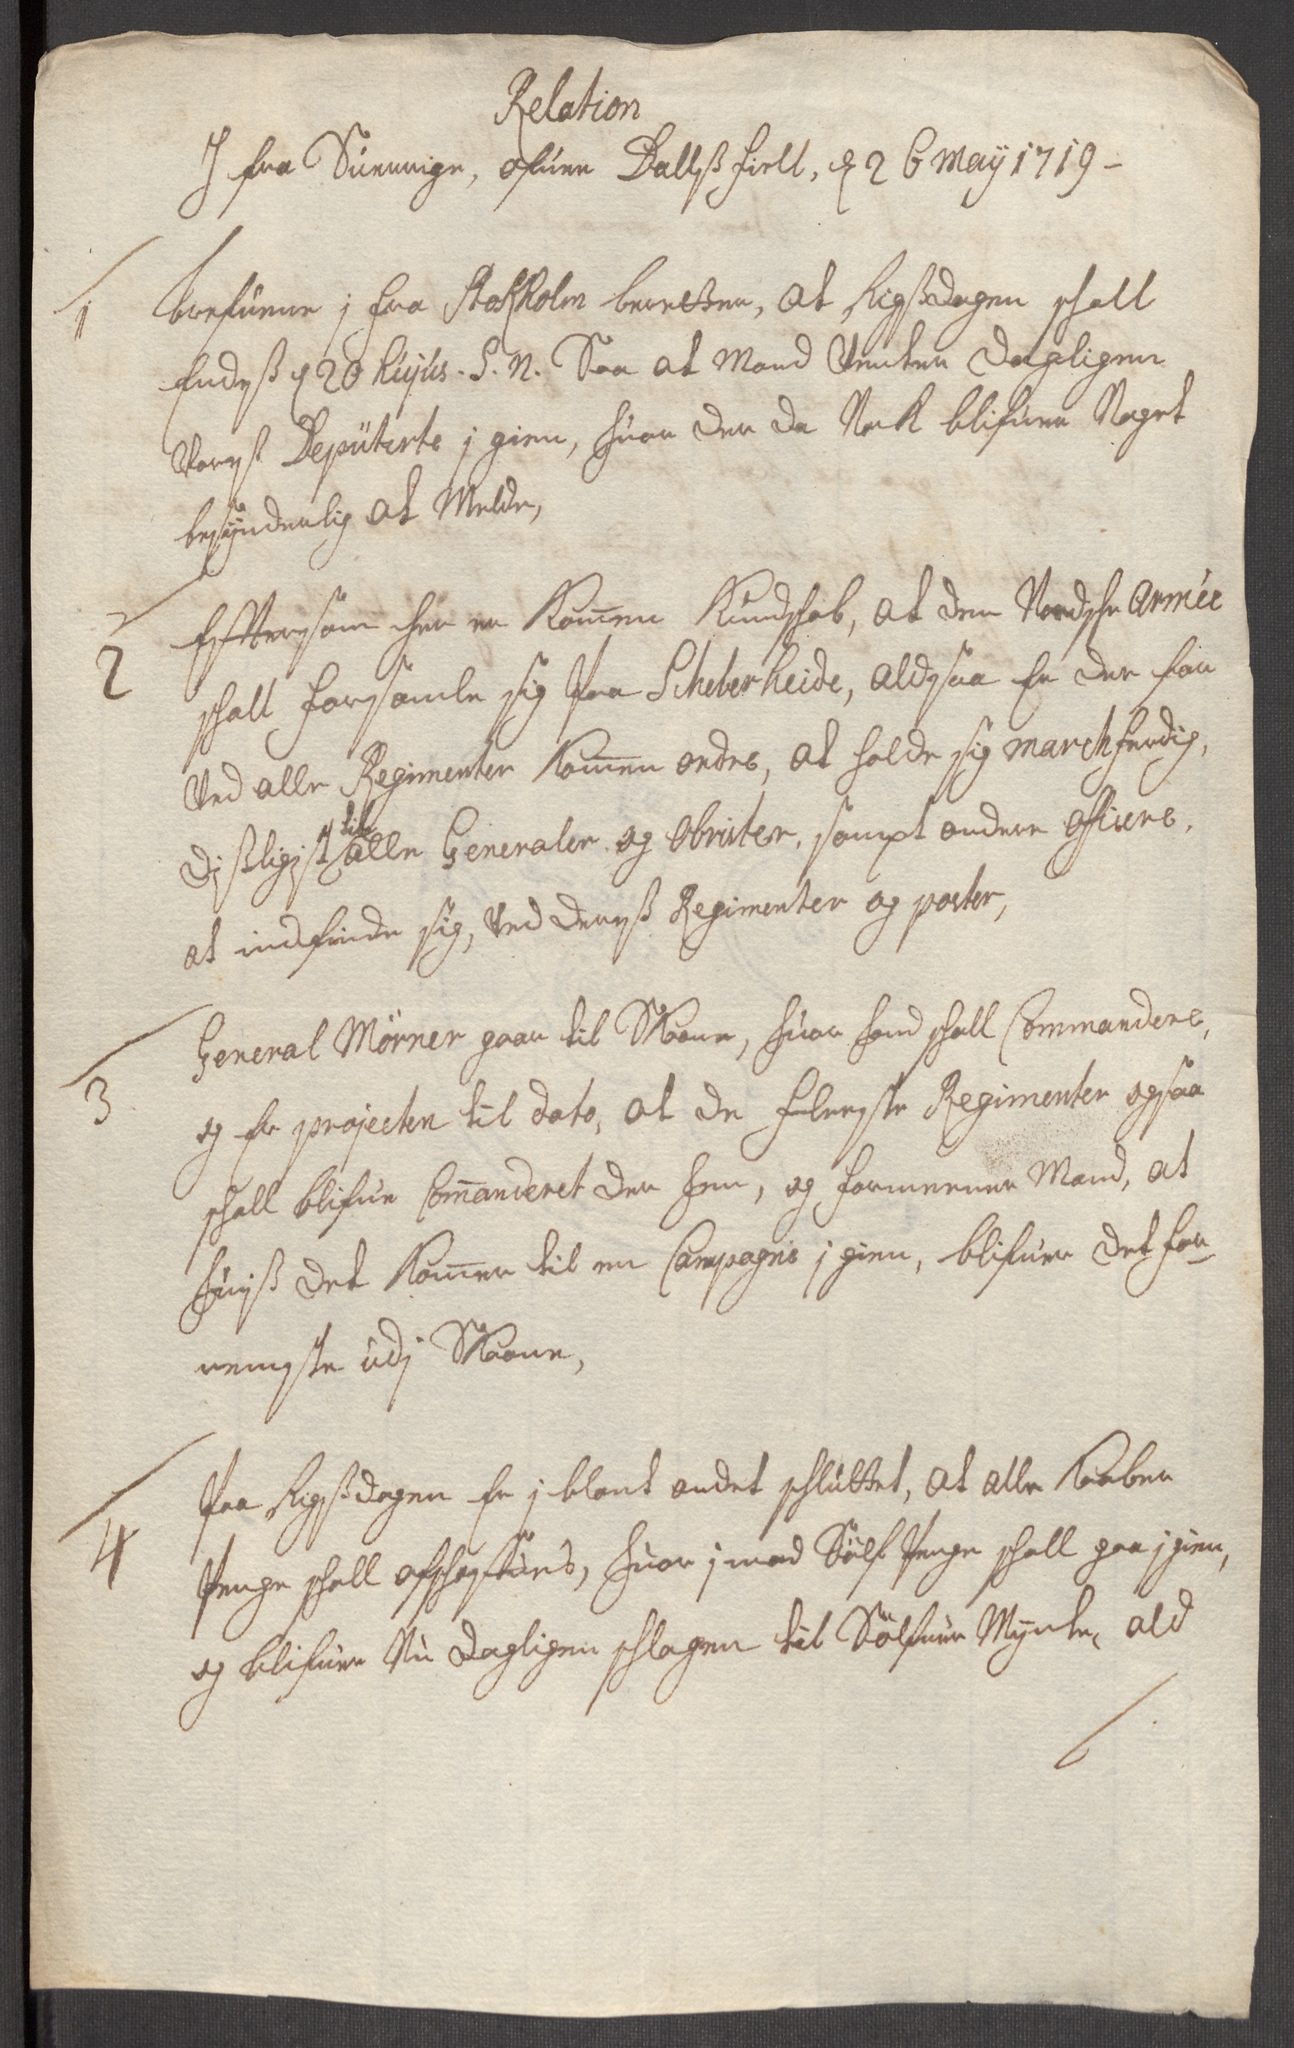 Relation
J fra Suerrige, ofuer Dallsß fiell, d 26 Maÿ 1719 -
1 brefuene j fra StokHolm beretter, at Rigsdagen schall
Endeß d 20 hujus. S. N. Saa at Mand Venter dagligen
Voreß Deputerte j gien, huor der da Nok blifuer Noget
besÿnderlig at Melde,
2 Effttersom her er Kommen Kundschab, at den Nordsche Armée
schall forsamle sig paa Scheberheide, altsaa Er der for
Ved alle Regimenter Kommen ordre, at holde sig marchferdig,
dißligest til alle Generaler og Obrister, sampt andere officere,
at indfinde sig, Ved dereß Regimenter og poster,
3 General Mörner gaar til Skaane, huor hand schall Commandere,
og Er projecten til dato, at de fleeste Regimenter ogsaa
schall blifue Commanderet der hen, og formeener Mand, at
huiß det Kommer til en Campagnie j gien, blifuer det for-
nemste udj Skaane,
4 Paa Rigßdagen Er j blant andet schluttet, at alle Kaaber
Penge schall afschaffues, huor j mod Sölf Penge schall gaa j gien,
og blifuer Nu dagligen schlagen til Sölfuer Mÿnte, ald